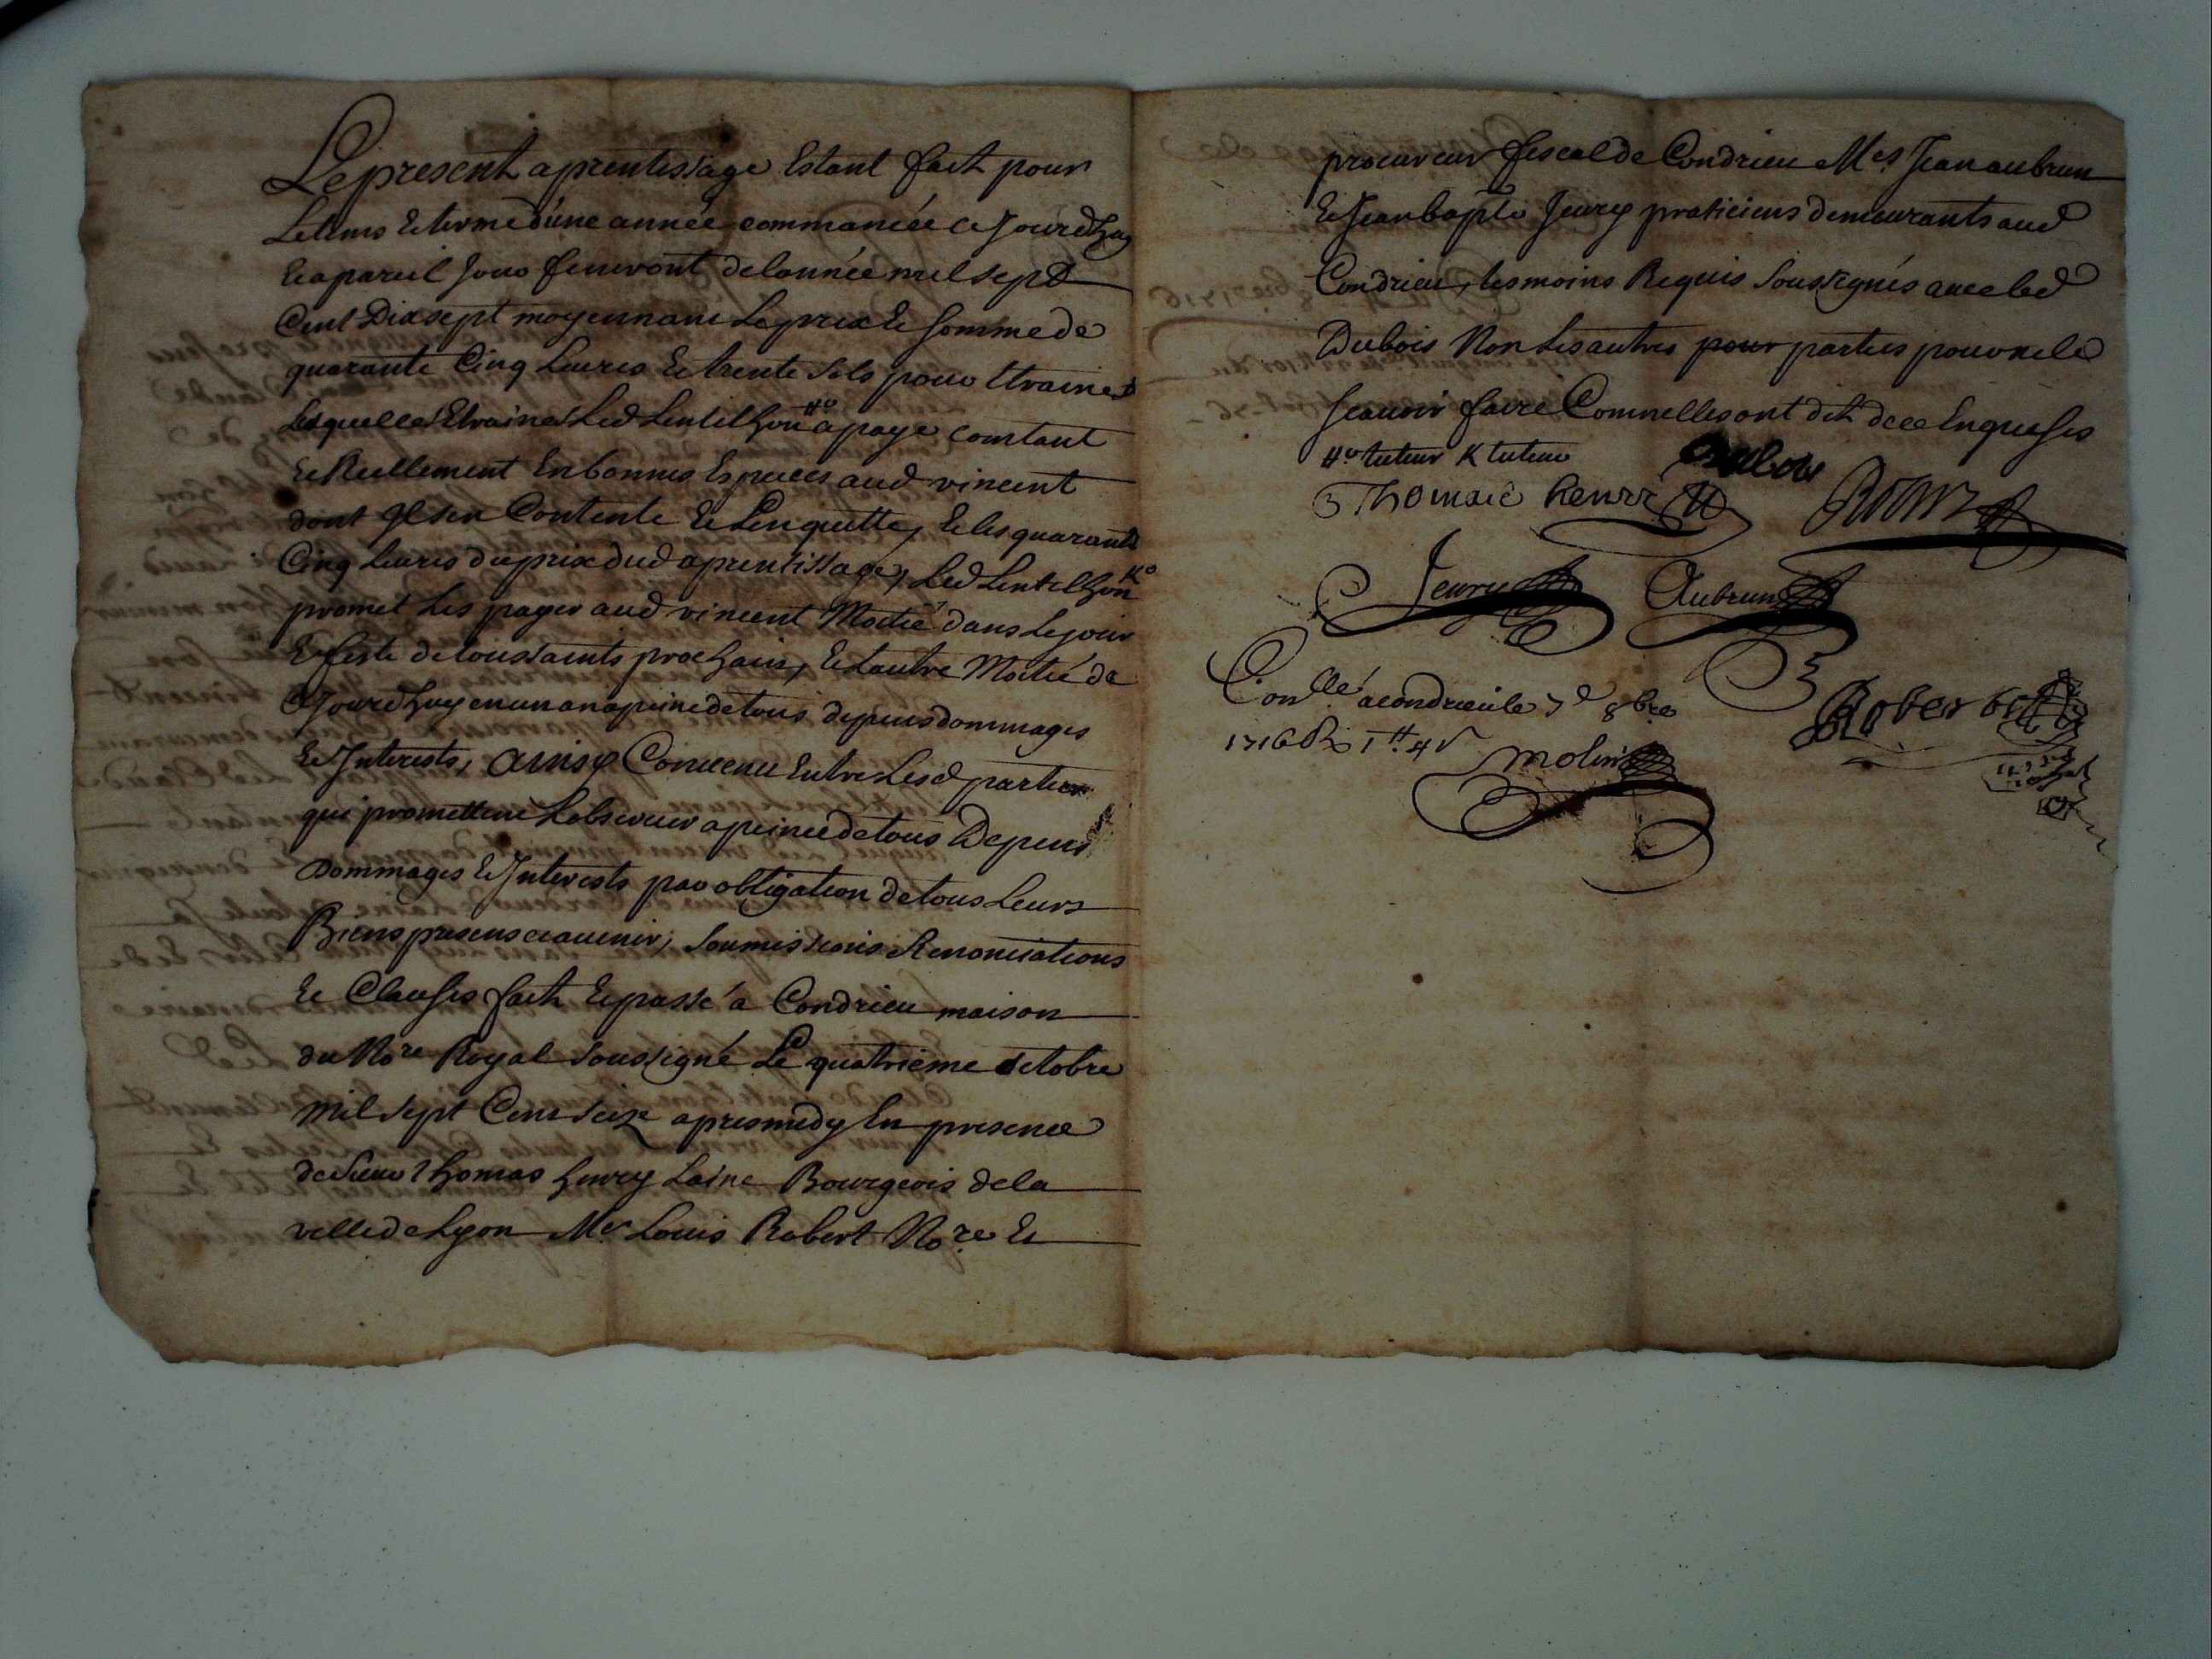 Le present aprentissage Estant fait pour
Le tems Et terme d'une année commancée ce Jourdhuy
Et a pareil Jour finiront de lannée mil sept
Cent Dix sept moyennant Le prix Et somme de
quarante Cinq Livres Et trente sols pour Etraines
Lesquelles Etraines Led Lentilhon #o a payé comtant
Et Reellement En bonnes Especes aud vincent
dont Il s'en Contente Et L'en quitte, Et les quarante
Cinq Livres du prix dud aprentissage, Led Lentilhon Ko
promet Les payer aud vincent Moitié dans Le jour
Et feste de toussaints prochain, Et Lautre Moitié de
ce Jourdhuy en un an a peine de tous depens dommages
Et Interests, Ainsy Convenu Entre Lesd parties
qui promettent Lobserver a peine de tous Depens
Dommages Et Interests par obligation de tous Leurs
Biens presens et avenir, soumissions Renonciations
Et Clauses fait Et passé a Condrieu maison
du Nore Royal soussigné Le quatrieme octobre
mil sept Cent seize apres midy En presence
de sieur Thomas henry Laine Bourgeois de la
ville de Lyon Me Louis Robert Nore Et
procureur fiscal de Condrieu Mes Jean aubrun
Et Jean bapte Jeury praticiens demeurants aud
Condrieu, tesmoins Requis soussignés avec led
Dubois Non Les autres pour parties pour ne le
scavoir faire Comm'elles ont dit de ce Enquises
#o tuteur K tuteur
Dubois
Thomas henri
Jeury Aubrun
Conllé a condrieu le 7e 8bre
1716 R 1# 4s
Robert
molin